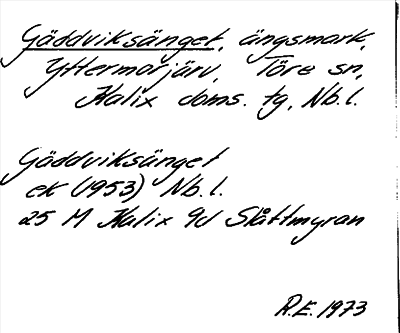 Gäddviksänget, ängsmark,
Yttermorjärv, Töre sn,
Kalix doms. tg, Nb. l.
Gäddviksänget
ek (1953) Nb. l.
25 M Kalix 9d Slåttmyran
R.E. 1973